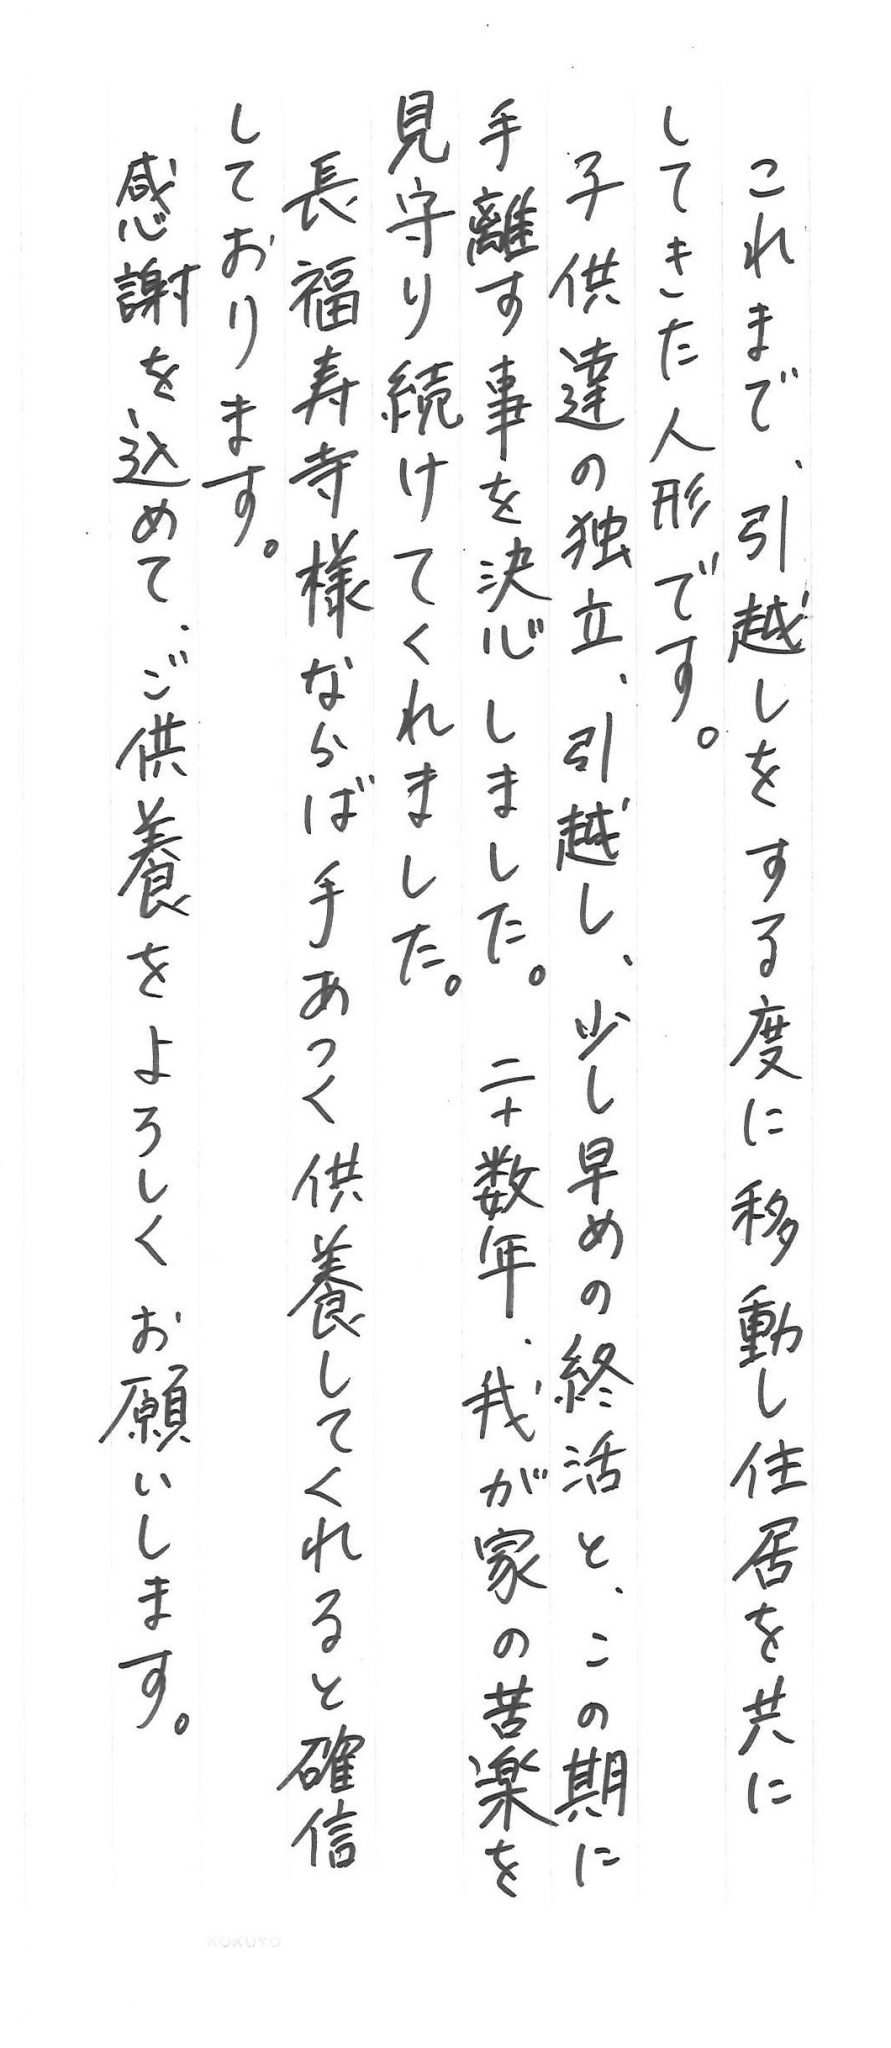 これまで、引越しをする度に移動し住居を共に
してきた人形です。
子供達の独立、引越し、少し早めの終活と、この期に
手離す事を決心しました。二十数年、我が家の苦楽を
見守り続けてくれました。
長福寿寺様ならば手あつく供養してくれると確信
しております。
感謝を込めて、ご供養をよろしくお願いします。
KOKUYO